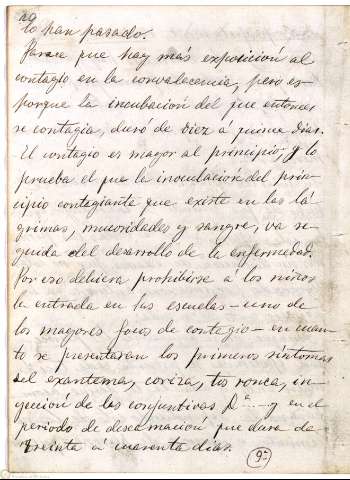 lo han pasado.
Parece que hay más exposición al
contagio en la convalecencia, pero es
porque la incubación del que entonces
se contagia, duró de diez á quince días.
El contagio es mayor al principio, y lo
prueba el que la inoculación del prin-
cipio contagiante que existe en las lá-
grimas, mucosidades y sangre, va se-
guida del desarrollo de la enfermedad.
Por eso debiera prohibirse á los niños
la entrada en las escuelas - uno de
los mayores focos de contagio - en cuan-
to se presentaran los primeros síntomas
del exantema, coriza, tos ronca, in-
yección de las conjuntivas &ª --- y en el
periodo de descamación que dura de
treinta á cuarenta días.
9ª